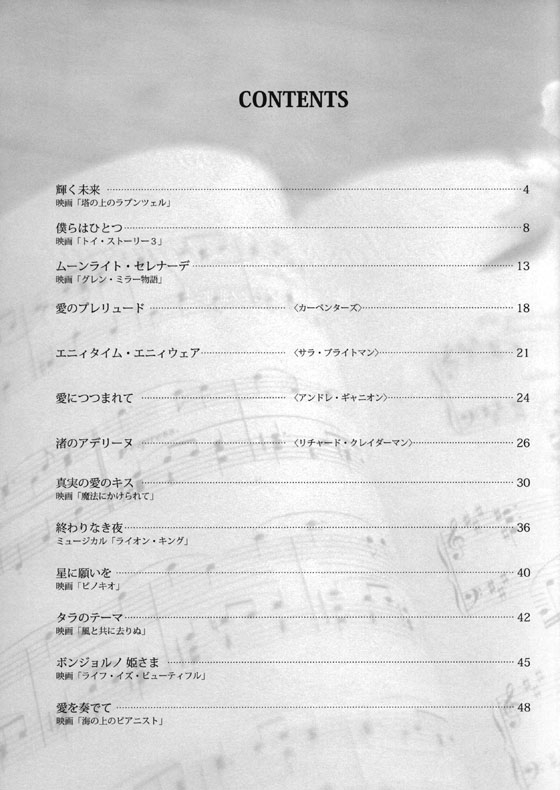 CONTENTS
輝く未来 4
映画「塔の上のラプンツェル」
僕らはひとつ 8
映画「トイ・ストーリー３」
ムーンライト・セレナーデ 13
映画「グレン・ミラー物語」
愛のプレリュード 〈カーペンターズ〉 18
エニィタイム・エニィウェア 〈サラ・ブライトマン〉 21
愛につつまれて 〈アンドレ・ギャニオン〉 24
渚のアデリーヌ 〈リチャード・クレイダーマン〉 26
真実の愛のキス 30
映画「魔法にかけられて」
終わりなき夜 36
ミュージカル「ライオン・キング」
星に願いを 40
映画「ピノキオ」
タラのテーマ 42
映画「風と共に去りぬ」
ボンジョルノ 姫さま 45
映画「ライフ・イズ・ビューティフル」
愛を奏でて 48
映画「海の上のピアニスト」